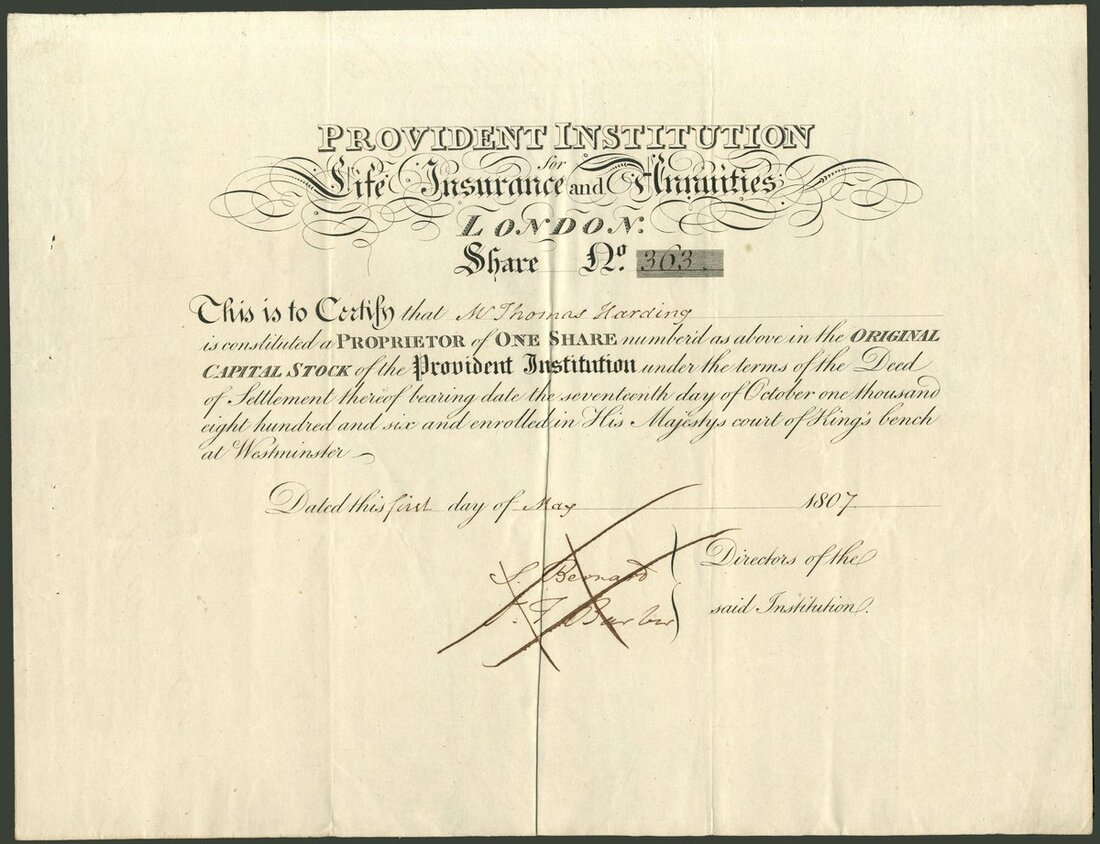 PROVIDENT INSTITUTION
for
Life Insurance and Annuities
LONDON.
Share No. 363.
This is to Certify that Mr Thomas Harding
is constituted a PROPRIETOR of ONE SHARE number'd as above in the ORIGINAL
CAPITAL STOCK of the Provident Institution under the terms of the Deed
of Settlement thereof bearing date the seventeenth day of October one thousand
eight hundred and six and enrolled in His Majestys court of King's bench
at Westminster
Dated this first day of May 1807
S. Bernard
J. F. Barber
Directors of the
said Institution.